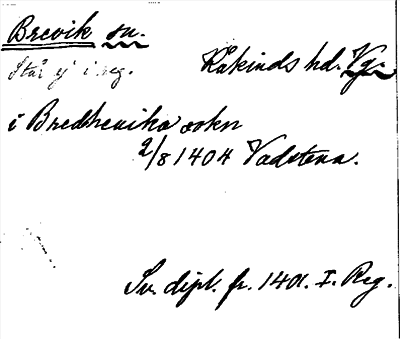 Brevik sn.
Kåkinds hd. Vg.
Står ej i reg.
i Bredhevika sokn
2/8 1404 Vadstena.
Sv. dipl. fr. 1401. I. Reg.